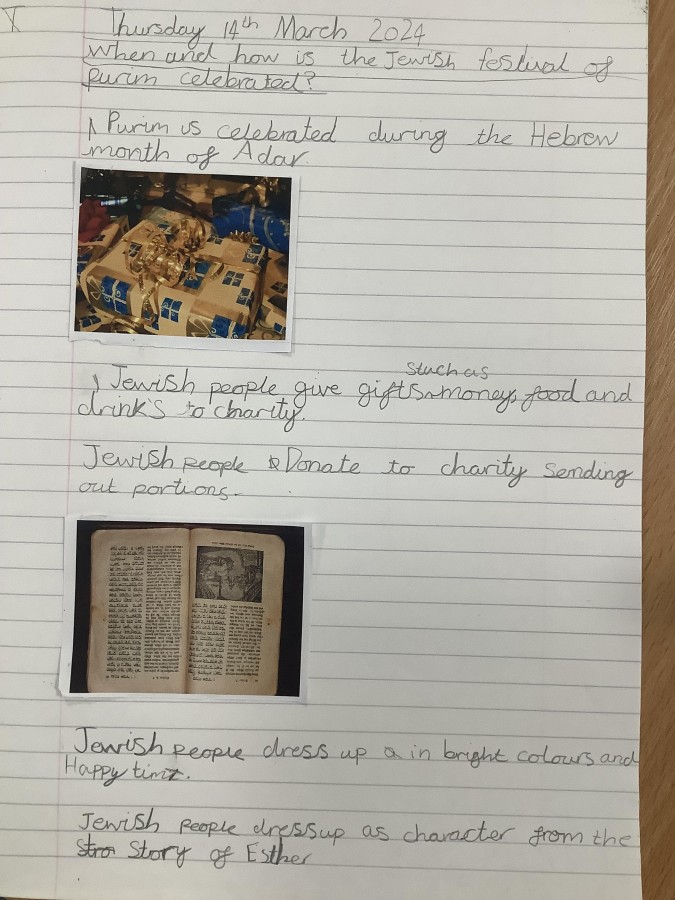 Thursday 14th March 2024
When and how is the Jewish festival of
purim celebrated?
Purim is celebrated during the Hebrew
month of Adar
such as
Jewish people give gifts money, food and
drinks to charity.
Jewish people Donate to charity sending
out portions.
Jewish people dress up a in bright colours and
Happy time.
Jewish people dress up as character from the
stro Story of Esther